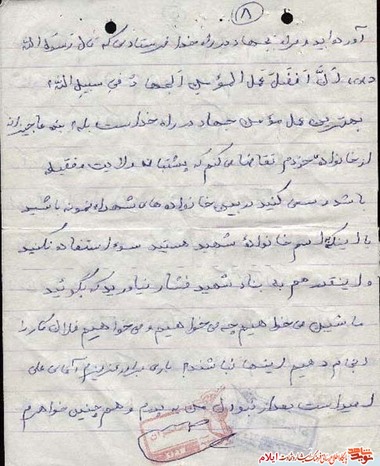 ۸
آورده‌اید و مرا به جهاد در راه خدا فرستادی که قال رسول الله
(ص) ان افضل عمل المؤمنین الجهاد فی سبیل الله؟
بهترین عمل مؤمن جهاد در راه خداست بله؟ بنده عاجزانه
از خانواده خودم تقاضا می‌کنم که پشتیبان ولایت فقیه
باشد و سعی کنید در بین خانواده‌های شهدا نمونه باشید
با اینکه اسم خانواده شهید هستید سوء استفاده نکنید
و اینقدر هم به بنیاد شهید فشار نیاورید که بگوئید
ماشین می‌خواهیم چه می‌خواهیم و می‌خواهیم فلان کار را
انجام دهیم اینها نباشند؟ باری برادر عزیزم آقای علی
امید است بعد از من و همچنین خواهرم
نوید شاهد
ایلام